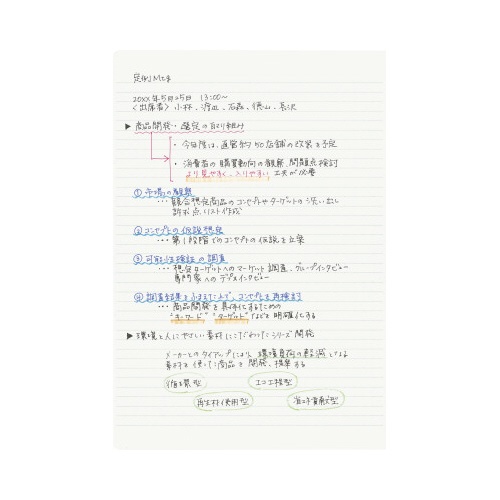 定例MTG
20XX年5月25日 13:00〜
<出席者> 小林、渡辺、石森、横山、長沢
▶商品開発・選定の取り組み
・今年度は、直営約50店舗の改装を予定
・消費者の購買動向の観察、問題点検討
より見やすく、入りやすい工夫が必要
①市場の観察
…競合想定商品のコンセプトやターゲットの洗い出し
訴求点リスト作成
②コンセプトの仮説想定
…第1段階でのコンセプトの仮説を立案
③可能性検証の調査
…想定ターゲットへのマーケット調査、グループインタビュー
専門家へのデプスインタビュー
④調査結果をふまえた上で、コンセプトを再検討
…商品開発を具体化するための
"キーワード" "ターゲット"などを明確化する
▶環境と人にやさしい素材にこだわったシリーズ開発
メーカーとのタイアップにより、環境負荷の軽減となる
素材を使った商品を開発、提案する
循環型
エコ工程型
再生材使用型
省エネ貢献型